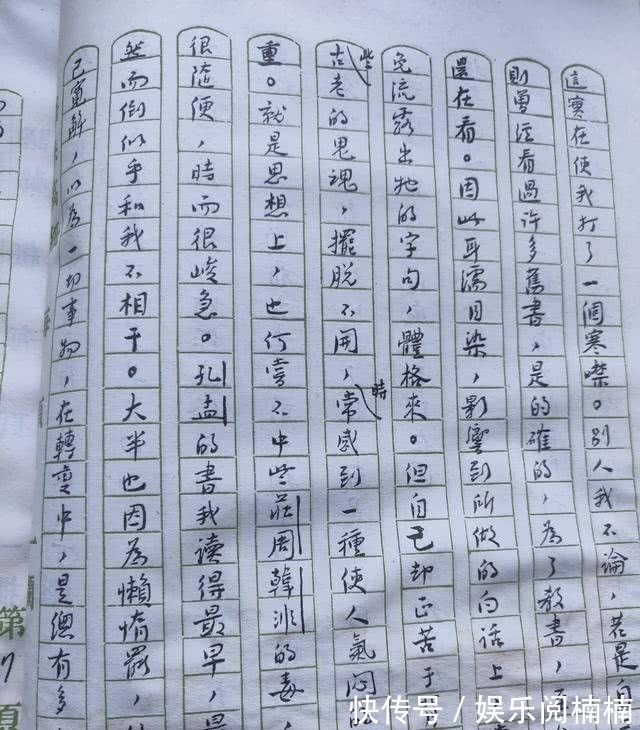 這實在使我打了一個寒噤。別人我不論，若是自
則曾經看過許多舊書，是的確的，為了教書，
還在看。因此耳濡目染，影響到所做的白話上
免流露出牠的字句，體格來。但自己却正苦于
些古老的鬼魂，擺脫不開，時常感到一種使人氣悶
重。就是思想上，也何嘗不中些莊周韓非的毒，
很隨便，時而很峻急。孔孟的書我读得最早，最
然而倒似乎和我不相干。大半也因為懶惰罷，
己寬解，以為一切事物，在轉變中，是總有多
第7頁
快传号／娱乐阅楠楠